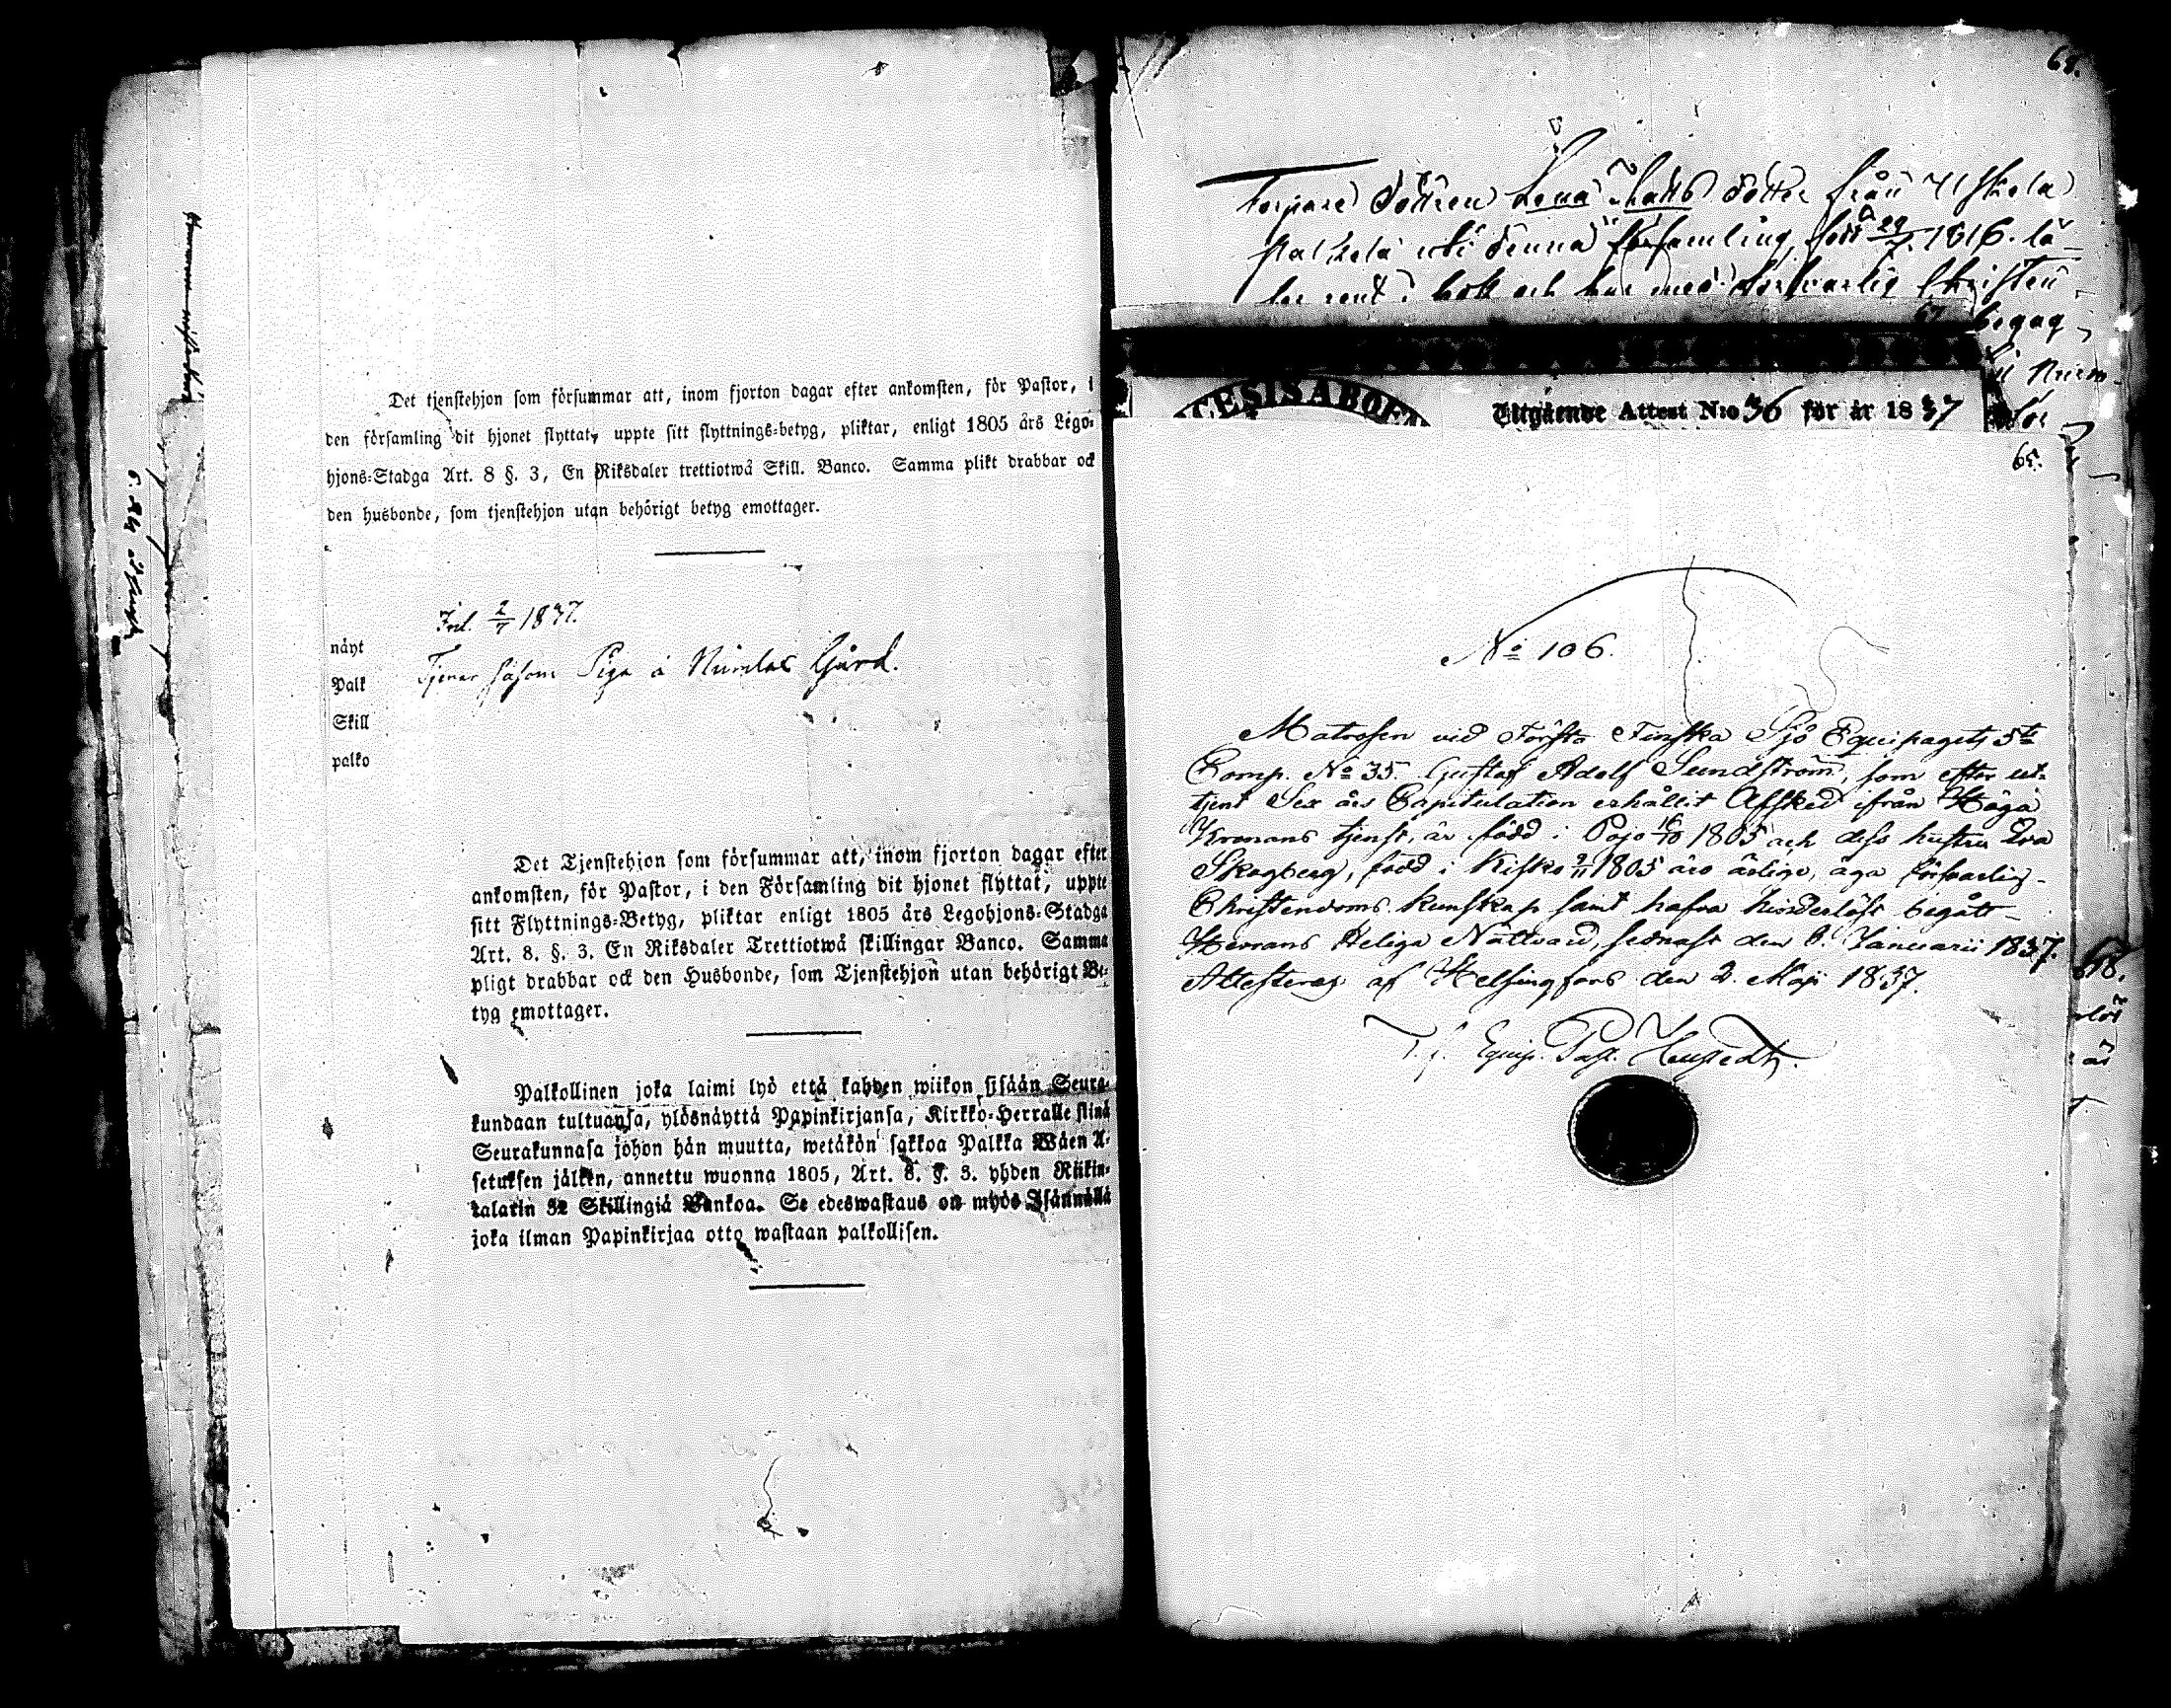 Det tjenstehjon som försummar att, inom fjorton dagar efter ankomsten, för Pastor, i
den församling dit hjonet flyttat, uppte sitt flyttnings-betyg, pliktar, enligt 1805 års Lego-
hjons-Stadga Art. 8 §. 3, En Riksdaler trettiotwå Skill. Banco. Samma plikt drabbar ock
den husbonde, som tjenstehjon utan behörigt betyg emottager.
2/7 1837.
Tjenar såsom Piga å Gård.
näyt
Palk
Skill
palko
Det Tjenstehjon som försummar att, inom fjorton dagar efter
ankomsten, för Pastor, i den Församling dit hjonet flyttat, uppte
sitt Flyttnings-Betyg, pliktar enligt 1805 års Legohjons-Stadga
Art. 8. §. 3. En Riksdaler Trettiotwå skillingar Banco. Samma
pligt drabbar ock den Husbonde, som Tjenstehjon utan behörigt Be-
tyg emottager.
Palkollinen joka laimi lyö että kahden wiikon sisään Seura-
kundaan tultuansa, ylösnäyttä Papinkirjansa, Kirkko-Herralle siinä
Seurakunnasa johon hän muutta, wetäkön sakkoa Palkka Wäen A-
setuksen jälken, annettu wuonna 1805, Art. 8. §. 3. yhden Riikin-
talarin 32 Skillingiä Bankoa. Se edeswastaus on myös Isännällä
joka ilman Papinkirjaa otto wastaan palkollisen.
68.
Torpare Dottren Lena Matts dotter från
uti denna församling, född 29/7 1816. lä-
ser rent i bok och har med försvarlig Christen
67
begag
CESIS ABOE
Utgående Attest N:o 36 för år 1837
65.
No 106.
Matrosen vid Första Finska Sjö Equipagets 5te
Comp. No 35. Gustaf Adolf Sundström, som efter ut-
tjent Sex års Capitulation erhållit Afsked ifrån Höga
Kronans tjenst, är född i Pojo 16/10 1805 och dess hustru Eva
Skogberg, född i Kisko 9/11 1805 äro ärlige, äga försvarlig
Christendoms kunskap samt hafva hinderlöst begått
Herrans Heliga Nattvard, sednast den 6. Januarii 1837.
Attesteras af Helsingfors den 2. Maji 1837.
T. f. Equip. Past.
68.
är